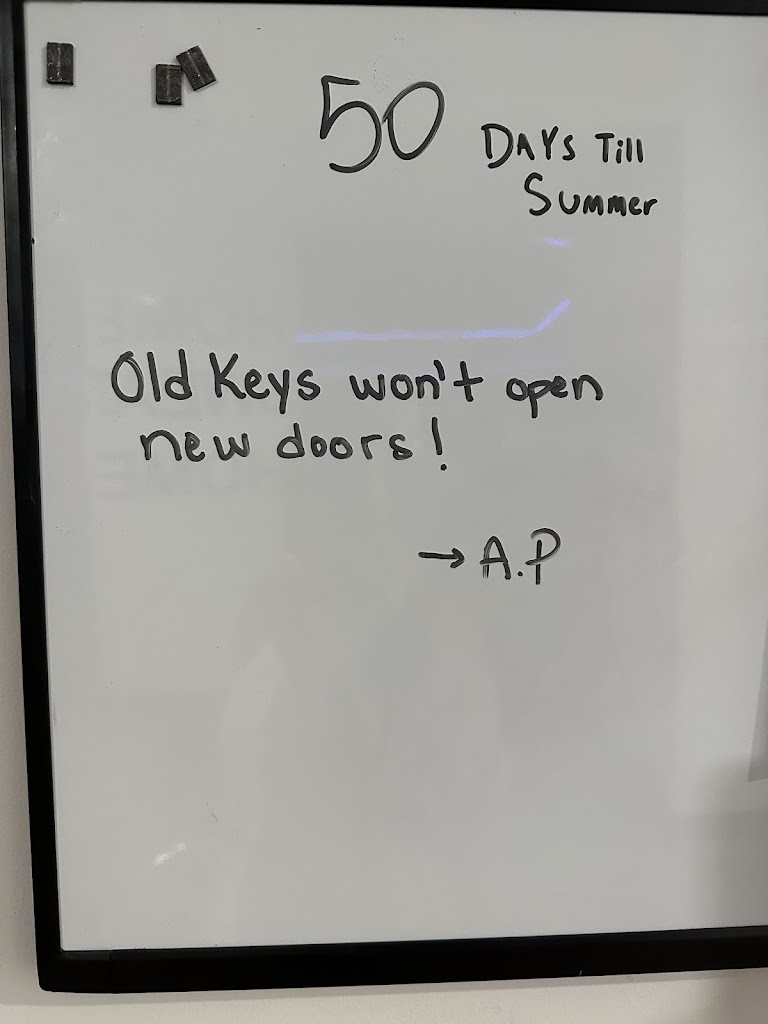 50 DAYS Till
Summer
Old Keys won't open
new doors!
→ A.P